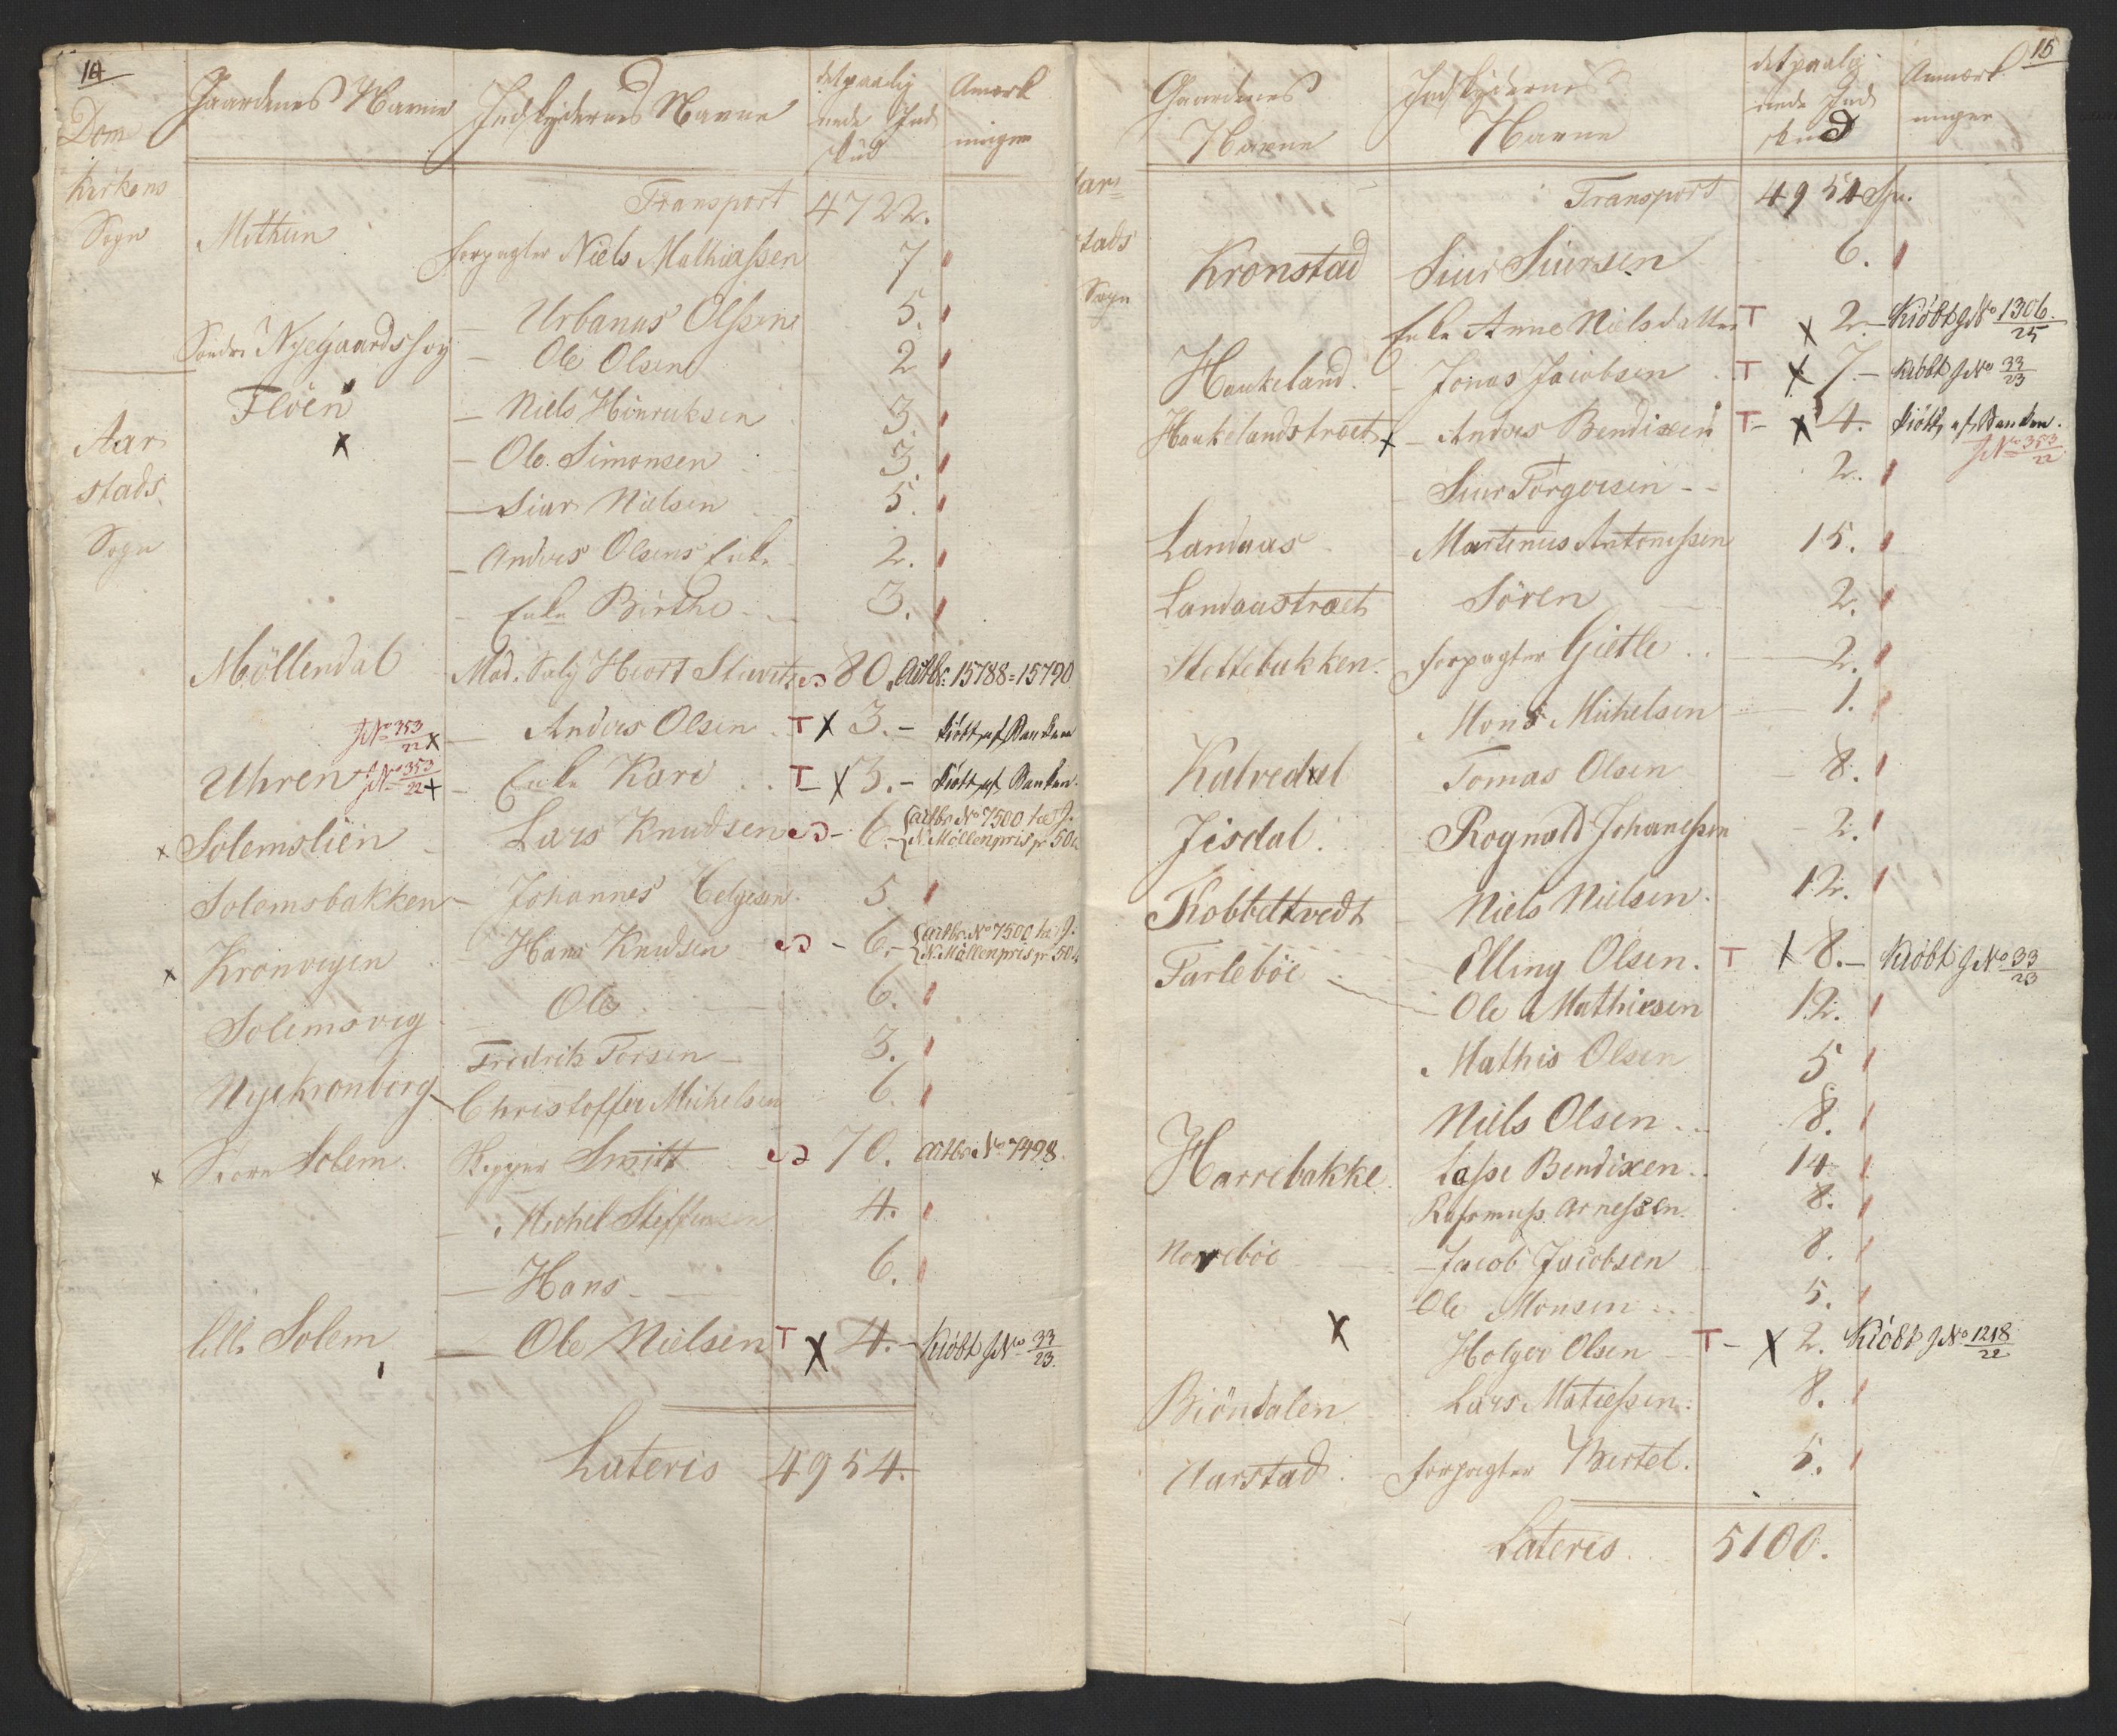 14
Dom
Kirkens
Sogn
Gaardenes Navne Indskydernes Navne det paalig nede Ind skud Anmærk ninger
Transport 4722.
Mithun forpagter Niels Mathiassen 7
Urbanus Olssen 5.
Søndre Nyegaards - Ole Olsen 2
Aar
stads
Sogn
Flöen - Niels Hinriksen 3.
x - Ole Simonsen 3.
- Siur Nielsen 5.
- Anders Olsens Enke 2.
- Enke Birthe 3.
Möllendal Mad. Salg Hiort 80. Actbr. 15788=15790
JNo 353/22 x - Anders Olsen T x 3.- kiöbt af Banken
Uhren JNo 353/22 x - Enke Kari T x 3.- kiöbt af Banken.
x Solemslien - Lars Knudsen - 6.- {actbr No 7500 N. Möllenpris pr 50
Solemsbakken - Johannes Helgesen 5.
x Kronvigen - Hans Knudsen - 6.- {actbr. No 7500 N. Möllenpris pr 50
Solemsvig - Ole 6.
Fredrik Torsen 3.
Nyekronborg - Christoffer Michelsen 6.
x Store Solem. Smitt 70. actbr No 7498.
- Michel Steffensen 4.
- Hans - 6.
lille Solem - Ole Nielsen T x 4.- Kiöbt JNo 33/23.
Lateris 4954.
15
Gaardenes Navne Indskydernes Navne det paalig nede Ind skud Anmærk ninger
Aar=
stads
Sogn
Transport 4954 Spe.
Kronstad Siur Siursen 6.
Enke Anne Nielsdatter T x 2.- Kiöbt JNo 1306./25
Haukeland. - Jonas Jacobsen T x 7.- Kiöbt JNo 33/23
Haukelandstræet x - Anders Bendixen T- x 4. kiöbt af Banken.
JNo 353/22
- Siur Torgersen - - 2.
Landaas - Martinus Antonissen 15.
Landaastræet Sören 2.
Slettebakken. forpagter Gietle .. 2.
Mons Michelsen 1.
Kalvedal Tomas Olsen 8.
Jisdal. Rognald Johanessen 2.
Kobbeltvedt - Niels Nielsen. 12.
Tarleböe - Elling Olsen. T x 8.- Kiöbt JNo 33/23
- Ole Mathiesen 12.
Mathis Olsen 5
Niels Olsen 8.
Harrebakke. Lasse Bendixen. 14
Rassmuss Arnessen. 8.
Norreböe - Jacob Jacobsen 8.
Ole Monsen 5.
x Holger Olsen T- x 2. Kiöbt JNo 1218/22
Biöndalen Lars Matiessen. 8.
Aarstad. forpagter Bertel. 5.
Lateris. 5100.